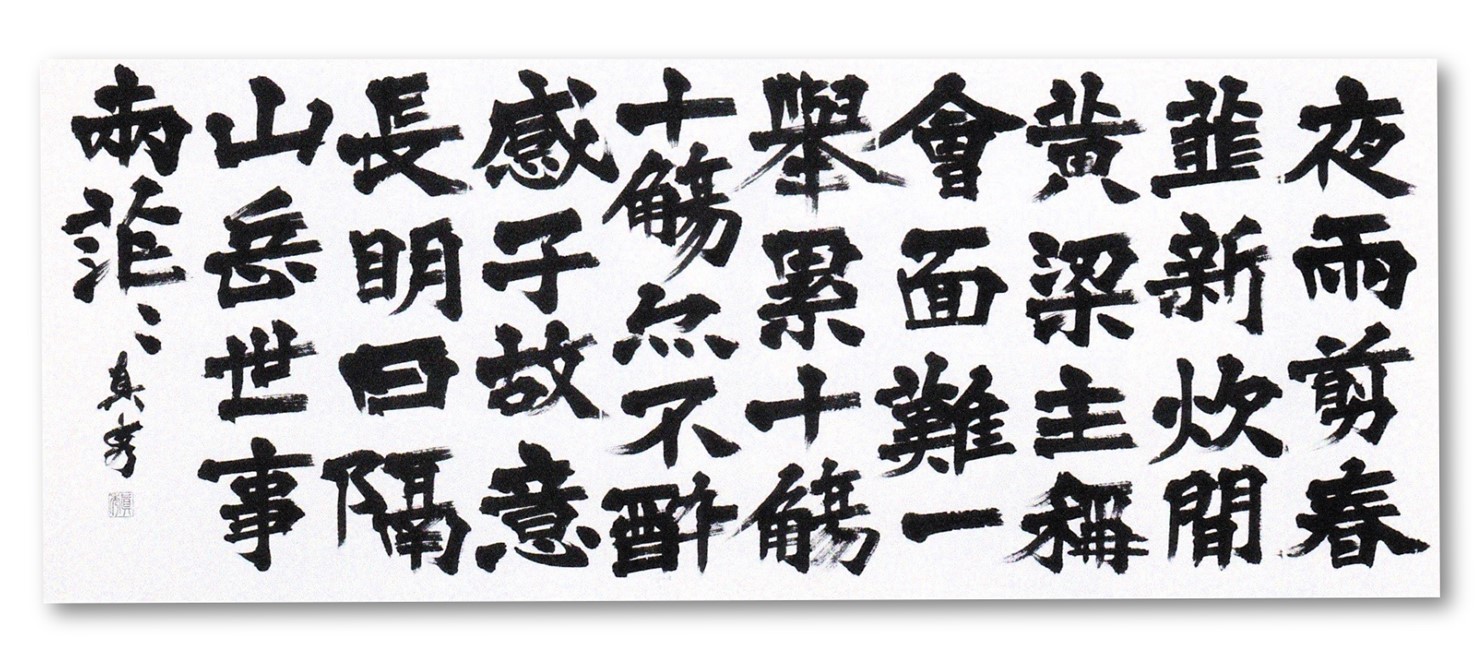 夜雨剪春
韮新炊間
黄梁主稱
會面難一
舉累十觴
十觴亦不酔
感子故意
長明日隔
山岳世事
兩茫〻